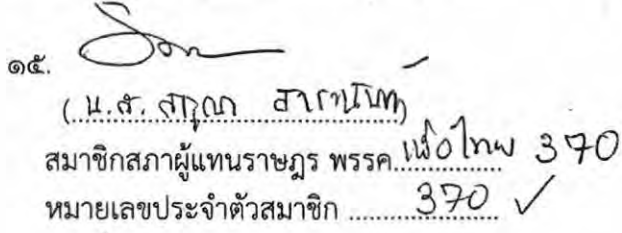 ๑๕.
(น.ส. สกุณา สาระนันท์)
สมาชิกสภาผู้แทนราษฎร พรรค เพื่อไทย 370
หมายเลขประจำตัวสมาชิก 370 ✓